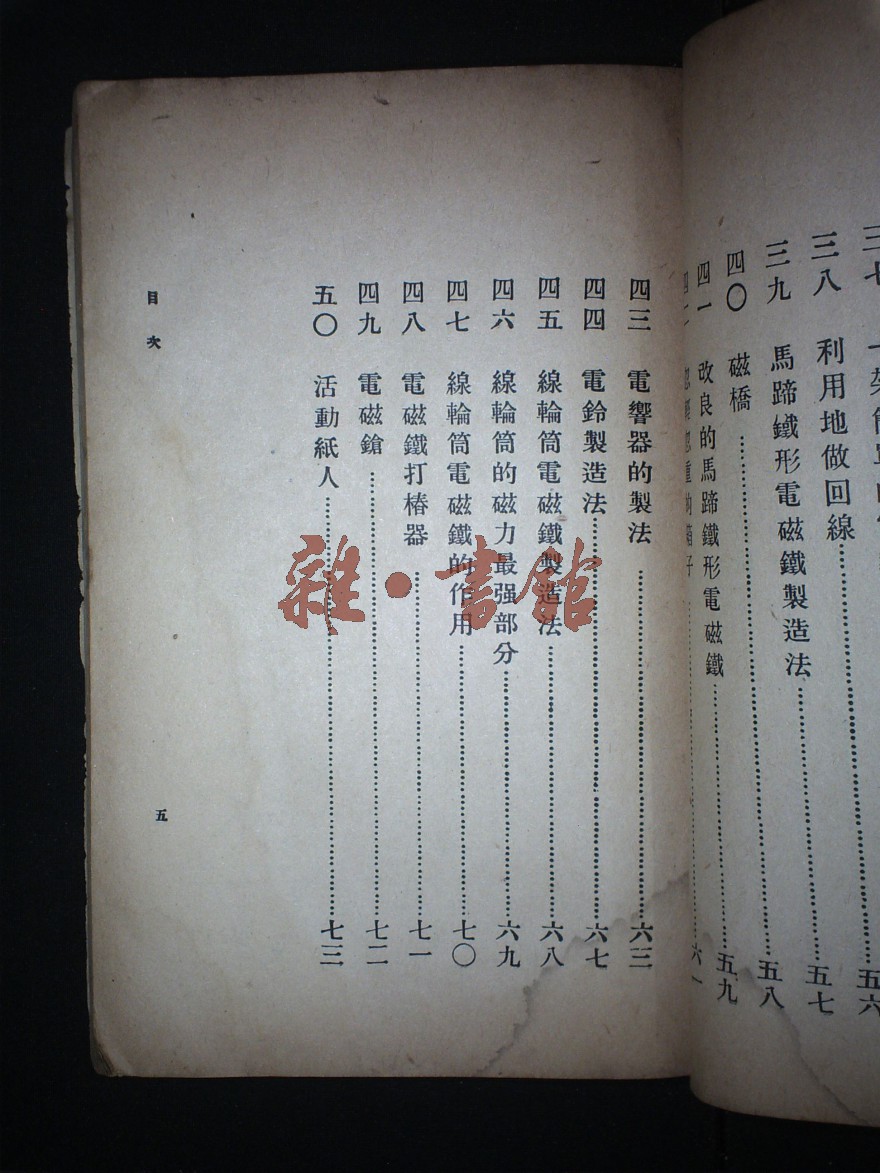 三七 一架簡單的
三八 利用地做回線 五六
三九 馬蹄鐵形電磁鐵製造法 五七
四〇 磁橋 五八
四一 改良的馬蹄鐵形電磁鐵 五九
四二 忽輕忽重的箱子 六一
四三 電響器的製法 六三
四四 電鈴製造法 六七
四五 線輪筒電磁鐵製造法 六八
四六 線輪筒的磁力最强部分 六九
四七 線輪筒電磁鐵的作用 七〇
四八 電磁鐵打樁器 七一
四九 電磁鎗 七二
五〇 活動紙人 七三
目次
五
雜·書館